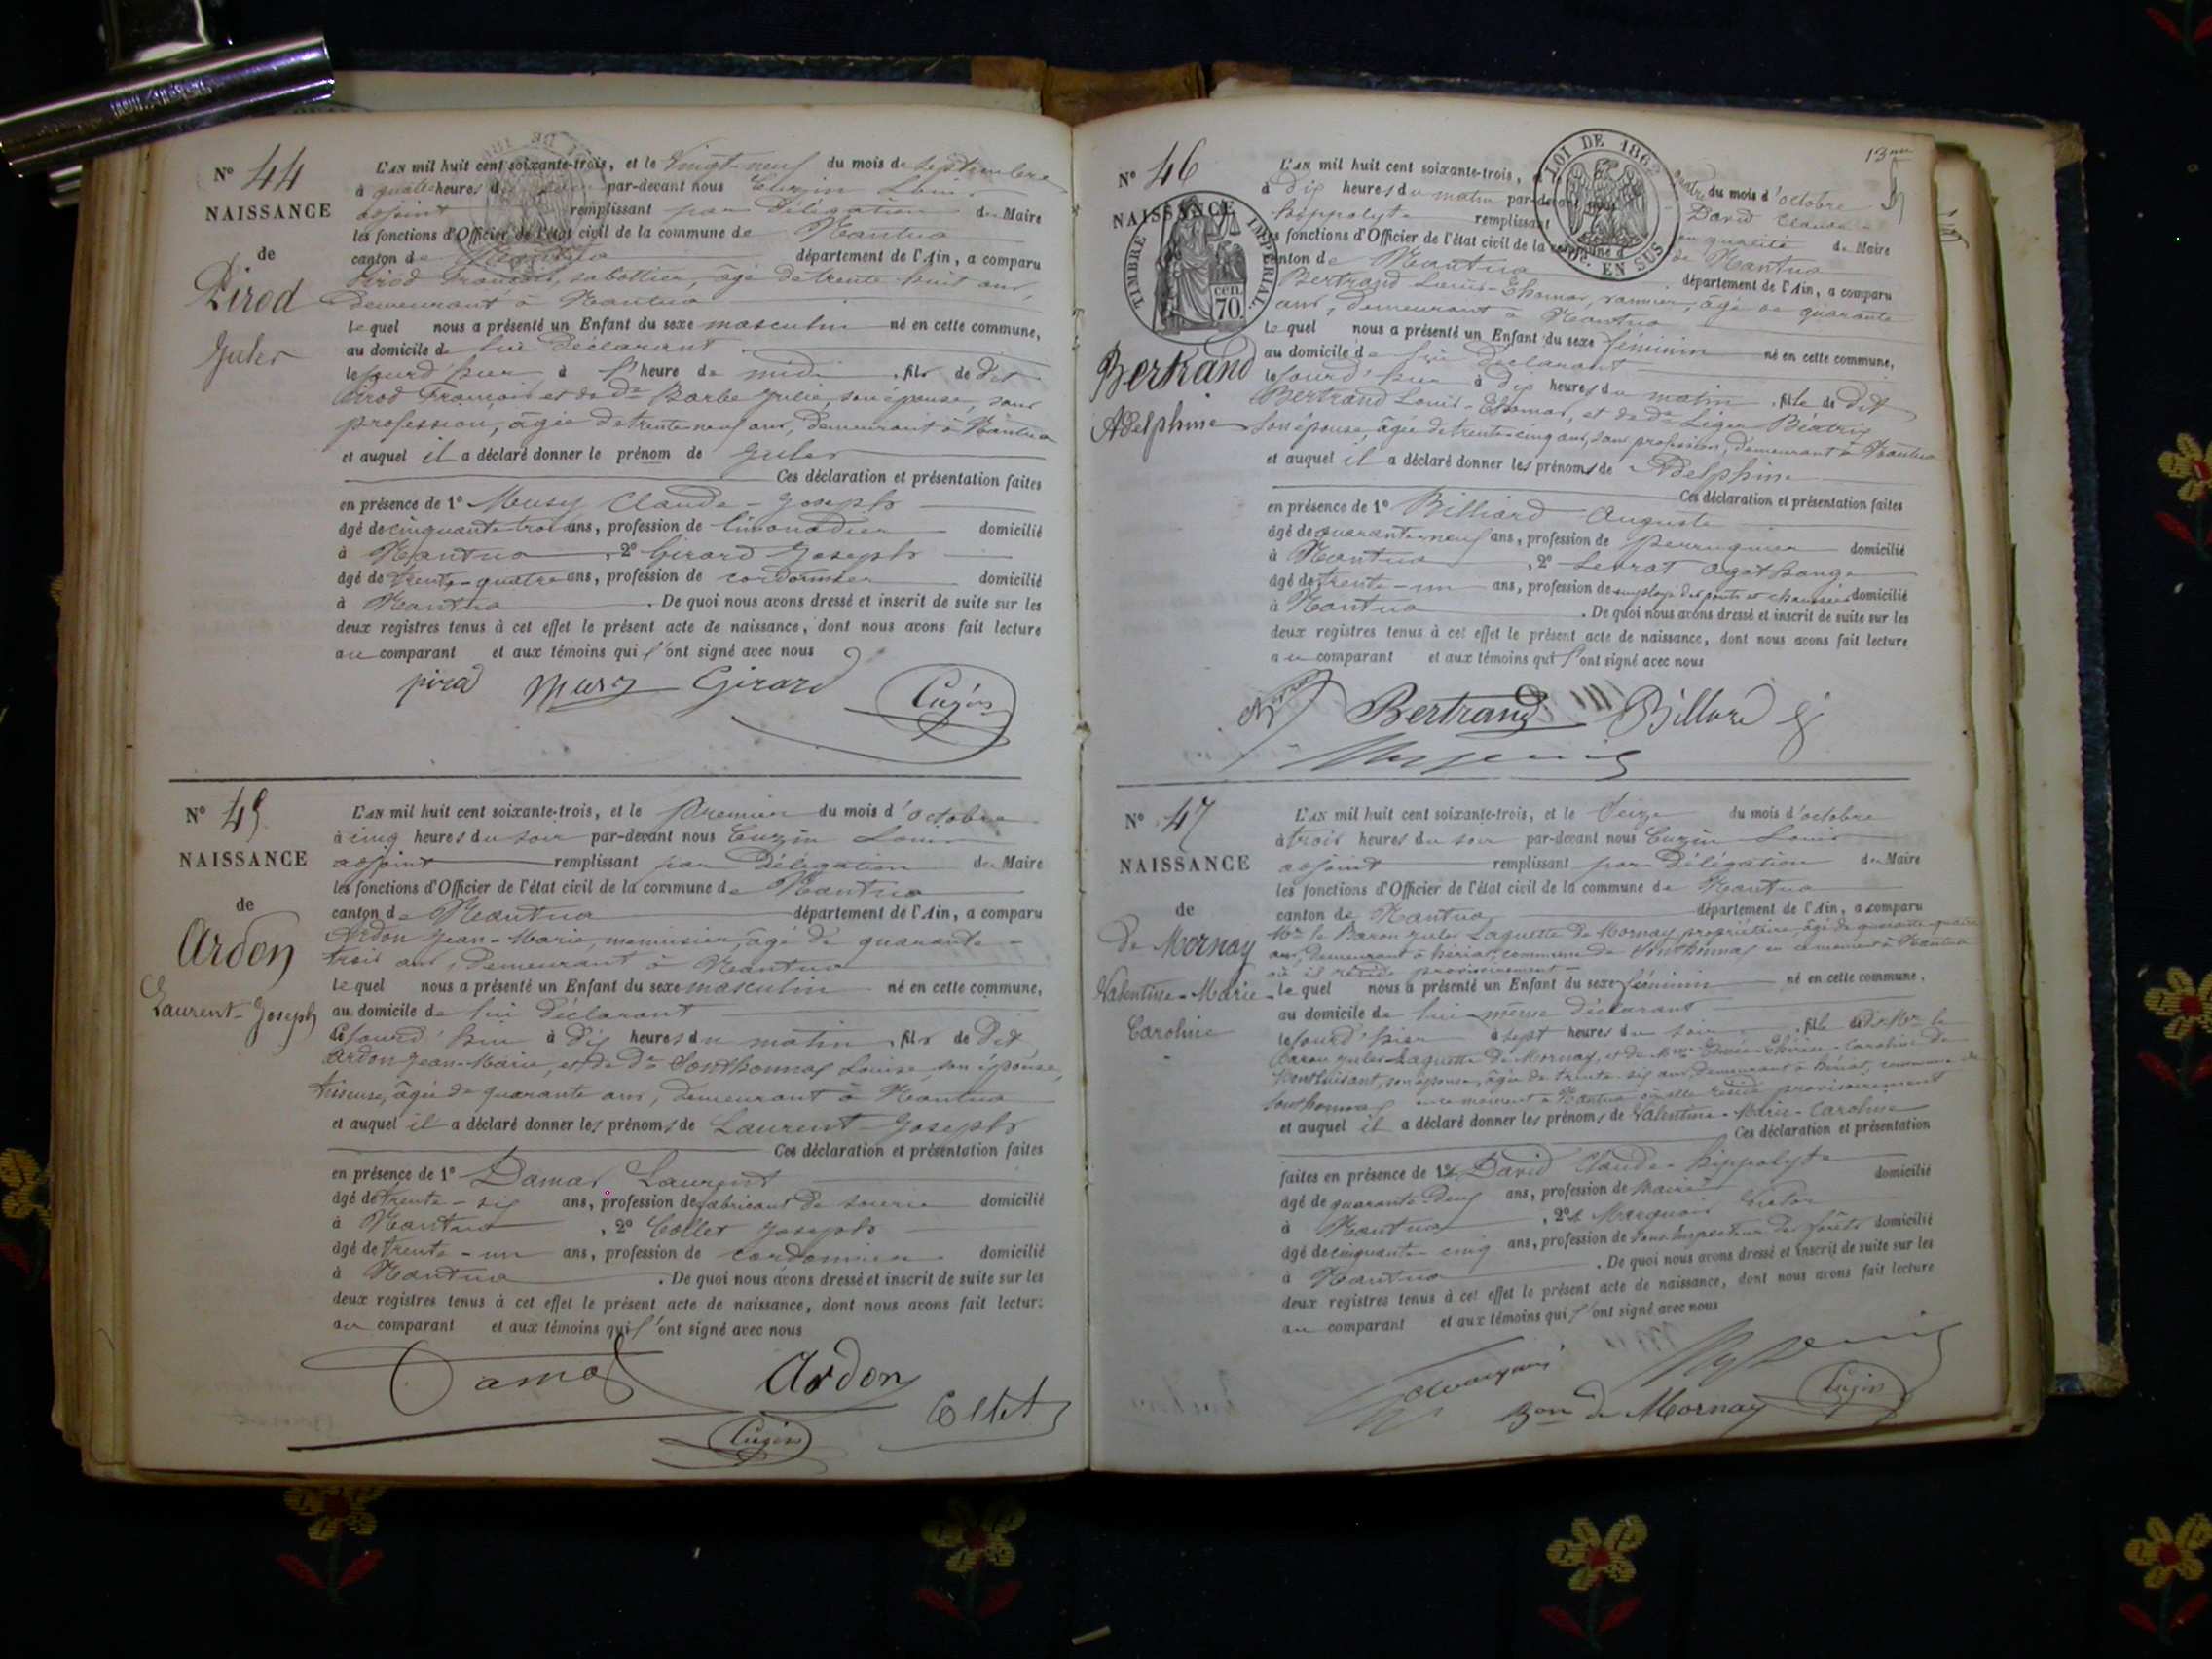 N° 44
NAISSANCE
de
Pirod
Jules
L'AN mil huit cent soixante-trois, et le Vingt-neuf du mois de Septembre
à quatre heures du soir par-devant nous Cuzin Louis
adjoint remplissant par Délégation du Maire
les fonctions d'Officier de l'état civil de la commune de Nantua
canton de Nantua département de l'Ain, a comparu
Pirod François, sabottier, âgé de trente huit ans,
demeurant à Nantua
lequel nous a présenté un Enfant du sexe masculin né en cette commune,
au domicile de lui déclarant
le jourd'hier à l'heure de midi, fils de dit
Pirod François et de De Barbe Julie, son épouse, sans
profession, âgée de trente neuf ans, demeurant à Nantua
et auquel il a déclaré donner le prénom de Jules
Ces déclaration et présentation faites
en présence de 1° Musy Claude-Joseph
âgé de cinquante trois ans, profession de limonadier domicilié
à Nantua, 2° Girard Joseph
âgé de trente-quatre ans, profession de cordonnier domicilié
à Nantua. De quoi nous avons dressé et inscrit de suite sur les
deux registres tenus à cet effet le présent acte de naissance, dont nous avons fait lecture
au comparant et aux témoins qui l'ont signé avec nous
pirod Musy Girard Cuzin
N° 45
NAISSANCE
de
Ardon
Laurent-Joseph
L'AN mil huit cent soixante-trois, et le Premier du mois d'octobre
à cinq heures du soir par-devant nous Cuzin Louis
adjoint remplissant par Délégation du Maire
les fonctions d'Officier de l'état civil de la commune de Nantua
canton de Nantua département de l'Ain, a comparu
Ardon Jean-Marie, menuisier, âgé de quarante-
trois ans, demeurant à Nantua
lequel nous a présenté un Enfant du sexe masculin né en cette commune,
au domicile de lui déclarant
le jourd'hui à dix heures du matin, fils de dit
Ardon Jean-Marie, et de De Sonthonnax Louise, son épouse,
tisseuse, âgée de quarante ans, demeurant à Nantua
et auquel il a déclaré donner les prénoms de Laurent-Joseph
Ces déclaration et présentation faites
en présence de 1° Damas Laurent
âgé de trente-six ans, profession de fabricant de soierie domicilié
à Nantua, 2° Collet Joseph
âgé de trente-un ans, profession de cordonnier domicilié
à Nantua. De quoi nous avons dressé et inscrit de suite sur les
deux registres tenus à cet effet le présent acte de naissance, dont nous avons fait lecture
au comparant et aux témoins qui l'ont signé avec nous
Damas Ardon
Collet
Cuzin
13me
N° 46
NAISSANCE
TIMBRE IMPÉRIAL
cen. 70
LOI DE 1862
EN SUS
Bertrand
Adelphine
L'AN mil huit cent soixante-trois, quatre du mois d'octobre
à dix heures du matin par-devant nous David Claude-
hippolyte remplissant en qualité de Maire
les fonctions d'Officier de l'état civil de la commune de Nantua
canton de Nantua département de l'Ain, a comparu
Bertrand Louis-Thomas, vannier, âgé de quarante
ans, demeurant à Nantua
lequel nous a présenté un Enfant du sexe féminin né en cette commune,
au domicile de lui déclarant
le jourd'hier à dix heures du matin, fille de dit
Bertrand Louis-Thomas, et de De Léger Béatrix
son épouse, âgée de trente-cinq ans, sans profession, demeurant à Nantua
et auquel il a déclaré donner les prénoms de Adelphine
Ces déclaration et présentation faites
en présence de 1° Billiard Auguste
âgé de quarante-neuf ans, profession de perruquier domicilié
à Nantua, 2° Levrat Agathange
âgé de trente-un ans, profession de employé des ponts et chaussées domicilié
à Nantua. De quoi nous avons dressé et inscrit de suite sur les
deux registres tenus à cet effet le présent acte de naissance, dont nous avons fait lecture
au comparant et aux témoins qui l'ont signé avec nous
Bertrand Billard
N° 47
NAISSANCE
de
de Mornay
Valentine-Marie
Caroline
L'AN mil huit cent soixante-trois, et le Seize du mois d'octobre
à trois heures du soir par-devant nous Cuzin Louis
adjoint remplissant par Délégation du Maire
les fonctions d'Officier de l'état civil de la commune de Nantua
canton de Nantua département de l'Ain, a comparu
Mr le Baron Jules Laguette de Mornay, propriétaire, âgé de quarante-quatre
ans, demeurant à hériat, commune de Sonthonnax en ce moment à Nantua
où il réside provisoirement
lequel nous a présenté un Enfant du sexe féminin né en cette commune,
au domicile de lui-même déclarant
le jourd'hier à sept heures du soir, fille de Mr le
Baron Jules Laguette de Mornay, et de Mme Thérèse-Caroline de
Montluisant, son épouse, âgée de trente-six ans, demeurant à hériat, commune de
Sonthonnax en ce moment à Nantua où elle réside provisoirement
et auquel il a déclaré donner les prénoms de Valentine-Marie-Caroline
Ces déclaration et présentation
faites en présence de 1° David Claude-hippolyte domicilié
âgé de quarante-deux ans, profession de Maire
à Nantua, 2° Marquois Victor
âgé de cinquante cinq ans, profession de Sous-Inspecteur des forêts domicilié
à Nantua. De quoi nous avons dressé et inscrit de suite sur les
deux registres tenus à cet effet le présent acte de naissance, dont nous avons fait lecture
au comparant et aux témoins qui l'ont signé avec nous
Bon de Mornay Cuzin